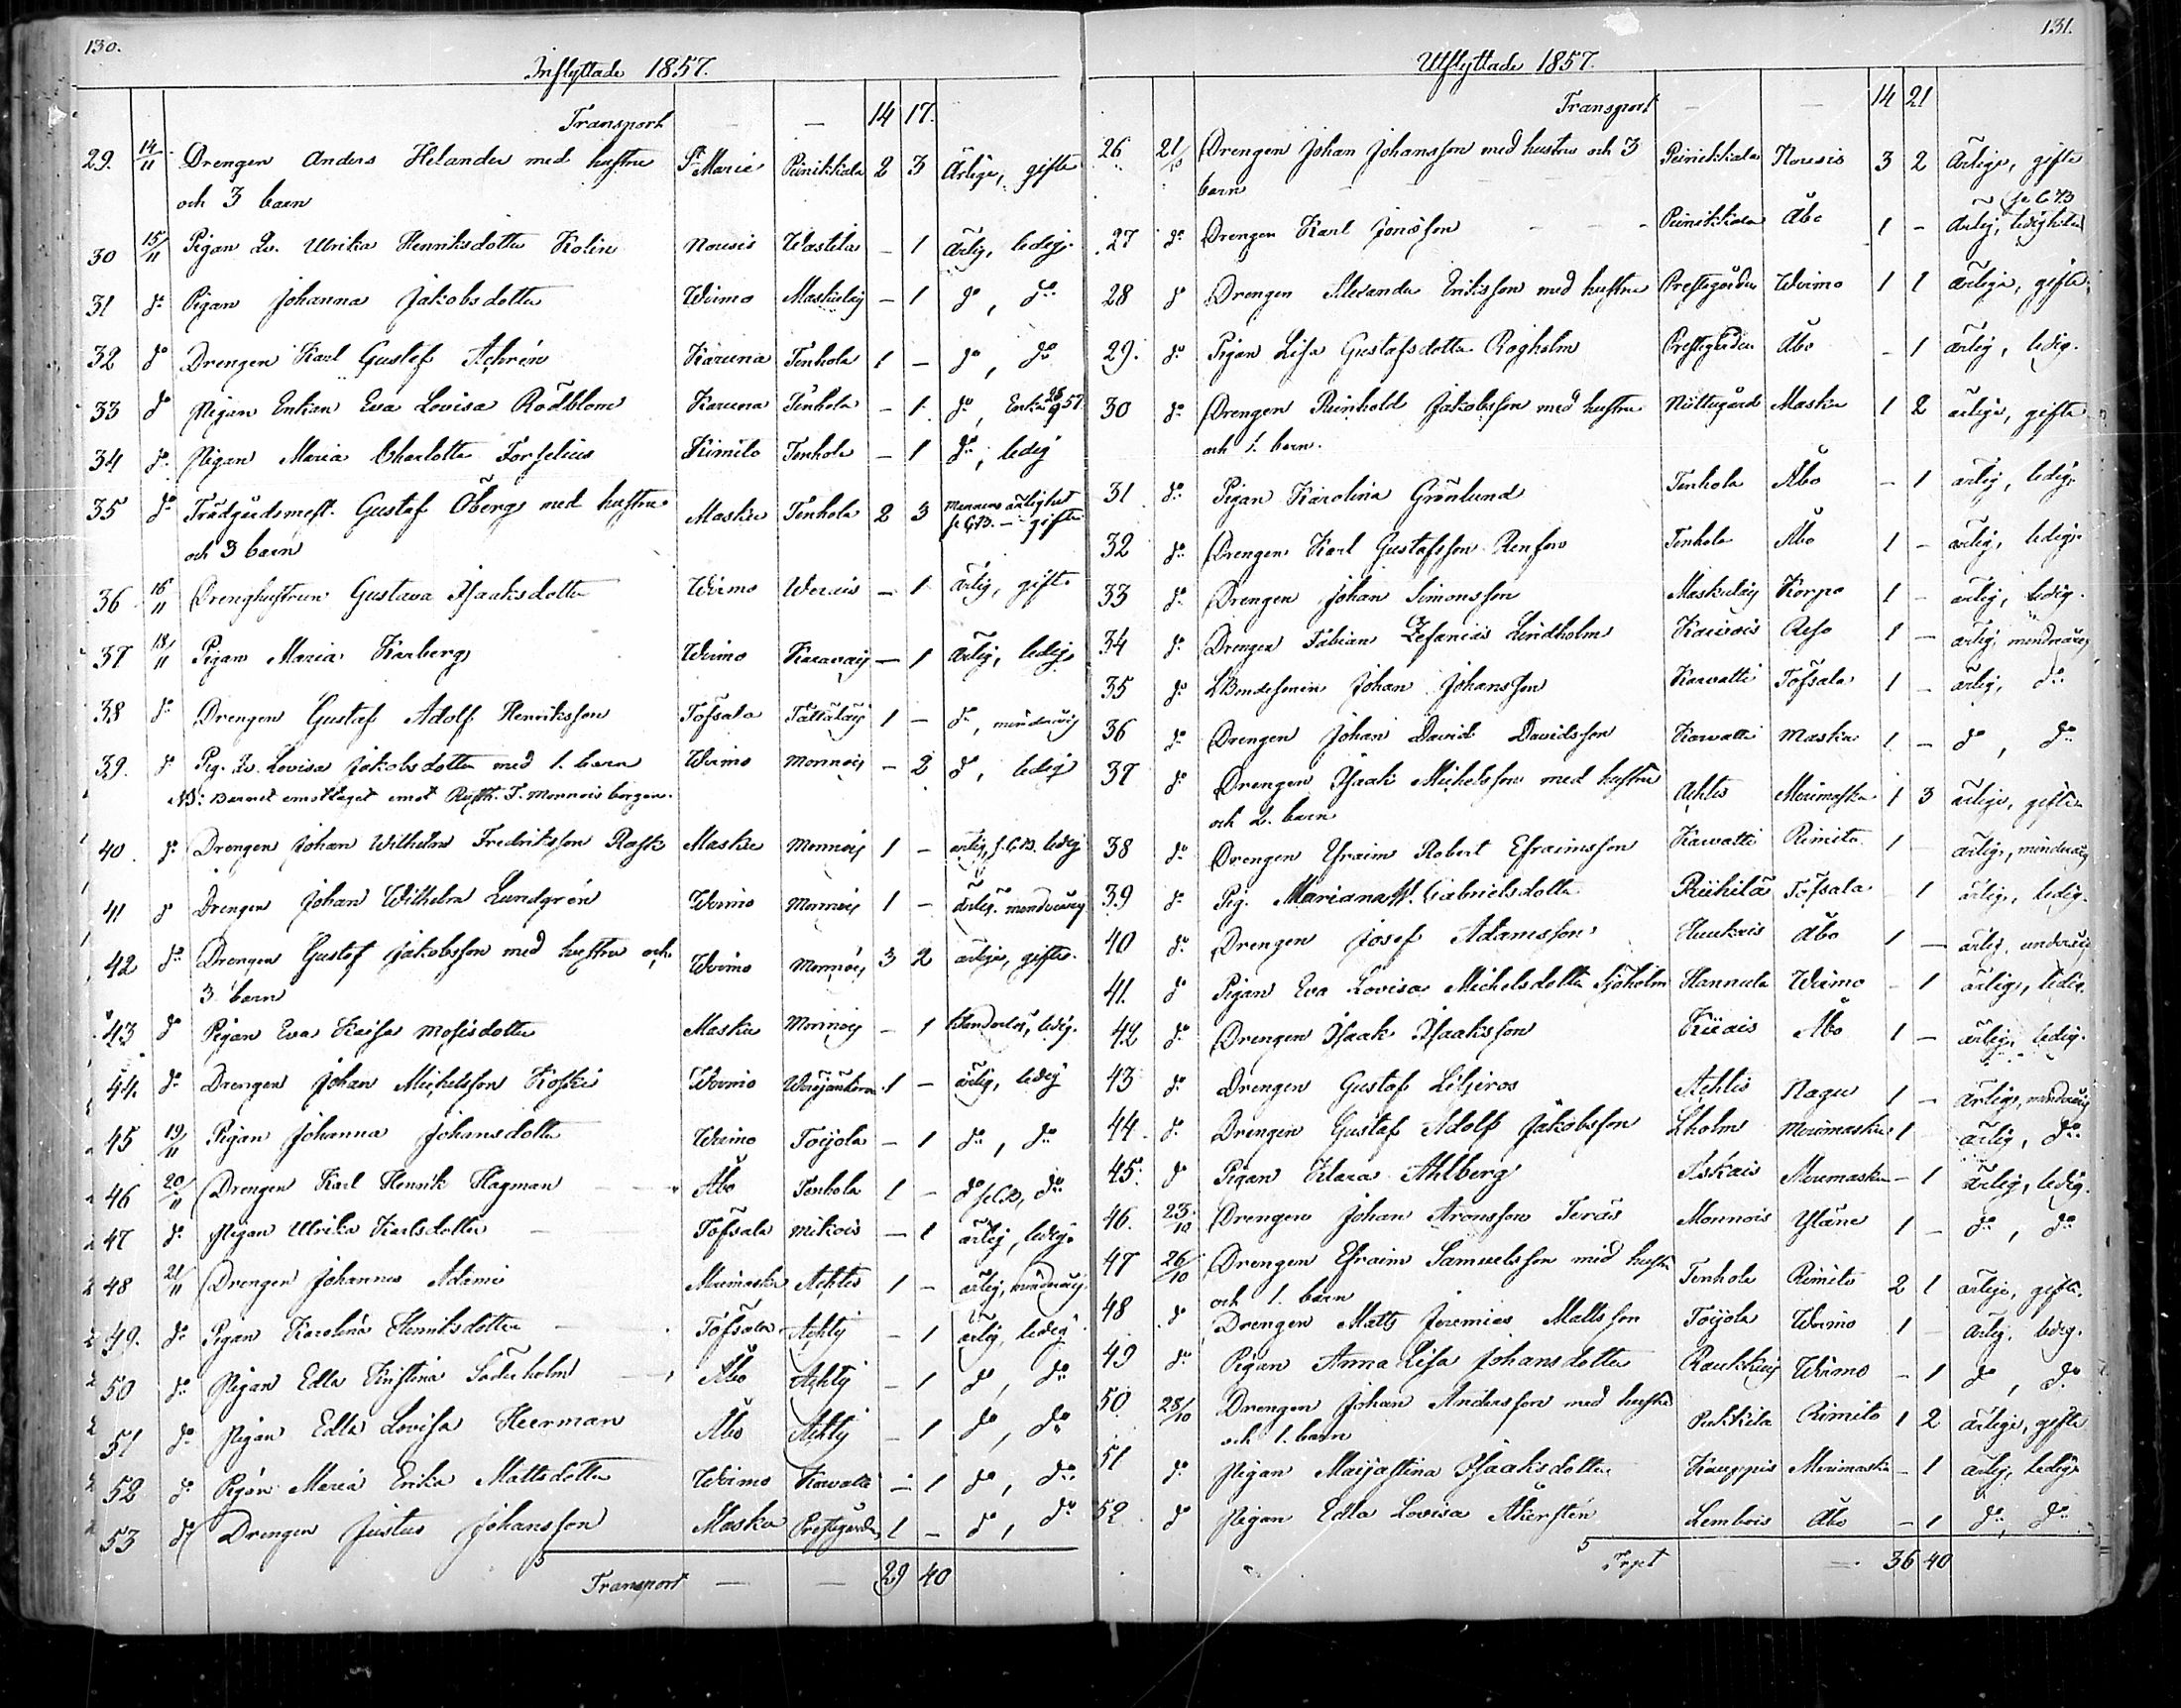 130.
Inflyttade 1857.
Transport — — 14 17.
29. 14/11 Drengen Anders Helander med hustru S:t Marie Peinikkala 2 3 Ärlige, gifte
och 3 barn
30 15/11 Pigan Lv. Ulrika Henriksdotter Kolin Nousis Wastila — 1 ärlig, ledig.
31 d:o Pigan Johanna Jakobsdotter Wirmo Maskulaij — 1 d:o, d:o
32 d:o Drengen Karl Gustaf Achrén Karuna Tenhola 1 — d:o, d:o
33 d:o Pigan Enkan Eva Lovisa Rödblom Karuna Tenhola — 1 d:o, Enka 28/9 57.
34 d:o Pigan Maria Charlotta Forselius Kimito Tenhola — 1 d:o, ledig
35 d:o Trädgårdsmest. Gustaf Öberg med hustru Masku Tenhola 2 3 Mannens ärlighet se C.B. — gifte
och 3 barn
36 16/11 Drenghustrun Gustava Isaaksdotter Wirmo — 1 ärlig, gift.
37 18/11 Pigan Maria Karberg Wirmo Karavaij — 1 ärlig, ledig
38 d:o Drengen Gustaf Adolf Henriksson Töfsala Tättälaij 1 — d:o, minderårig
39. d:o Pig. Lv. Lovisa Jakobsdotter med 1. barn Wirmo Monnoij — 2 d:o, ledig
NB: Barnet emottaget emot Rusth. T. Monnois borgen.
40. d:o Drengen Johan Wilhelm Fredriksson Rask Masku Monnoij 1 — ärlig, s.C.B. ledig
41 d:o Drengen Johan Wilhelm Lundgrén Wirmo Monnoij 1 — ärlig, minderårig
42 d:o Drengen Gustaf Jakobsson med hustru och Wirmo Monnoij 3 2 ärlige, gifte.
3 barn
43 d:o Pigan Eva Kaisa Mosisdotter Masku Monnoij — 1 ledig.
44. d:o Drengen Johan Michelsson Koski Wirmo 1 — ärlig, ledig
45 19/11 Pigan Johanna Johansdotter Wirmo Toijola — 1 d:o, d:o
46 20/11 Drengen Karl Henrik Hagman Åbo Tenhola 1 — d:o se C.B, d:o
47 d:o Pigan Ulrika Karlsdotter Töfsala Mikois — 1 ärlig, ledig.
48 21/11 Drengen Johannes Adami Merimasku Achtis 1 — ärlig, minderårig
49. d:o Pigan Karolina Henriksdotter Töfsala Achtij — 1 ärlig, ledig
50 d:o Pigan Edla Kristina Söderholm Åbo Achtij — 1 d:o, d:o
51 d:o Pigan Edla Lovisa Heerman Åbo Achtij — 1 d:o, d:o
52 d:o Pigan Maria Erika Mattsdotter Wirmo Karvatti — 1 d:o, d:o
53 d:o Drengen Justus Johansson Masku Prestgården 1 — d:o, d:o
Transport — — 29 40
131.
Utflyttade 1857.
Transport — — 14 21
26 21/10 Drengen Johan Johansson med hustru och 3 Peinikkala Nousis 3 2 Ärlige, gifte
barn
27 d:o Drengen Karl Jonsson Peinikkala Åbo 1 — ärlig, ledigheten se C.B
28 d:o Drengen Alexander Eriksson med hustru Prestgården Wirmo 1 1 ärlige, gifte
29. d:o Pigan Lisa Gustafsdotter Rogholm Prestgården Åbo — 1 ärlig, ledig.
30 d:o Drengen Reinhold Jakobsson med hustru Masku 1 2 ärlige, gifte
och 1. barn.
31 d:o Pigan Karolina Grönlund Tenhola Åbo — 1 ärlig, ledig.
32 d:o Drengen Karl Gustafsson Renfors Tenhola Åbo 1 — ärlig, ledig.
33 d:o Drengen Johan Simonsson Maskulaij Korpo 1 — ärlig, ledig.
34 d:o Drengen Fabian Zefanias Lindholm Kaivois Reso 1 — ärlig, minderårig
35 d:o Bondesonen Johan Johansson Karvatti Töfsala 1 — ärlig, d:o
36 d:o Drengen Johan David Davidsson Karvatti Masku 1 — d:o, d:o
37 d:o Drengen Isaak Michelsson med hustru Achtis Merimasku 1 3 ärlige, gifte
och 2. barn
38 d:o Drengen Efraim Robert Efraimsson Karvatti Rimito 1 ärlig, minderårig
39 d:o Pig. Mariana W. Gabrielsdotter Riihilä Töfsala 1 ärlig, ledig.
40 d:o Drengen Josef Adamsson Åbo 1 — ärlig,
41. d:o Pigan Eva Lovisa Michelsdotter Sjöholm Hannula Wirmo — 1 ärlig, ledig.
42 d:o Drengen Isaak Isaaksson Åbo 1 — ärlig, ledig.
43 d:o Drengen Gustaf Liljeros Achtis Nagu 1 — ärlig, minderårig
44. d:o Drengen Gustaf Adolf Jakobsson Lholm Merimasku 1 ärlig, d:o
45. d:o Pigan Klara Ahlberg Askais Merimasku — 1 ärlig, ledig.
46. 23/10 Drengen Johan Aronsson Teräs Monnois Yläne 1 — d:o, d:o
47 26/10 Drengen Efraim Samuelsson med hustru Tenhola Rimito 2 1 ärlige, gifte.
och 1. barn
48 d:o Drengen Matts Jeremias Mattsson Toijola Wirmo 1 — ärlig, ledig.
49 d:o Pigan Anna Lisa Johansdotter Raukkaij Wirmo — 1 d:o, d:o
50 28/10 Drengen Johan Andersson med hustru Pukkila Rimito 1 2 ärlige, gifte
och 1. barn
51 d:o Pigan Maijastina Isaaksdotter Kauppis Merimasku — 1 ärlig, ledig
52 d:o Pigan Edla Lovisa Åkerstén Lembois Åbo — 1 d:o, d:o
Trpt — — 36 40